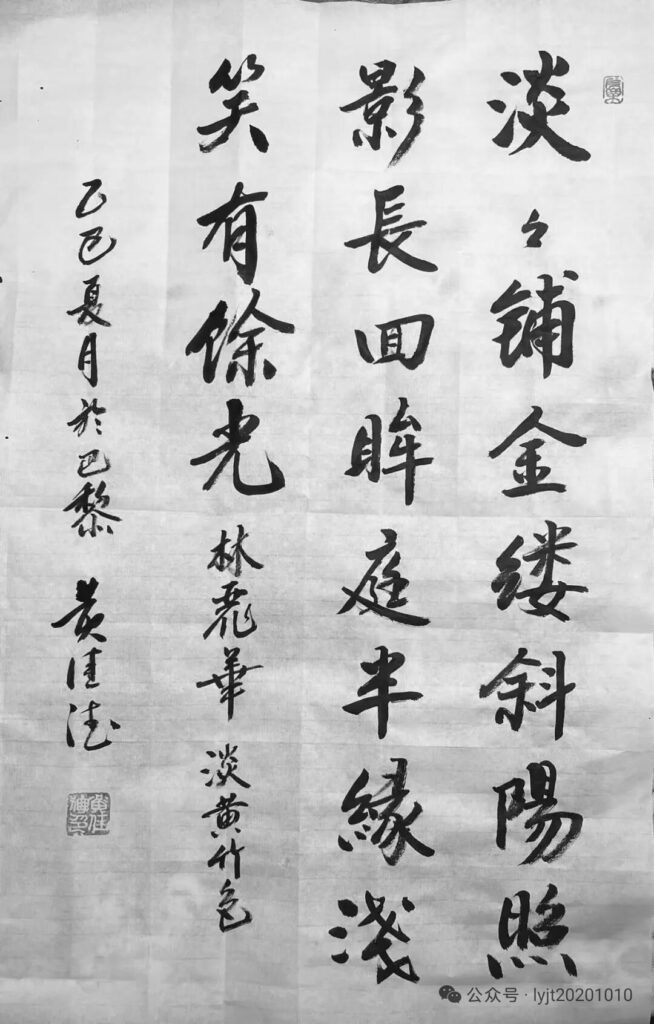 淡々铺金缕斜陽照
影長回眸庭半緣淺
笑有餘光 林麗華 淡黄竹色
乙巳夏月於巴黎 黄佳德
公众号·lyjt20201010